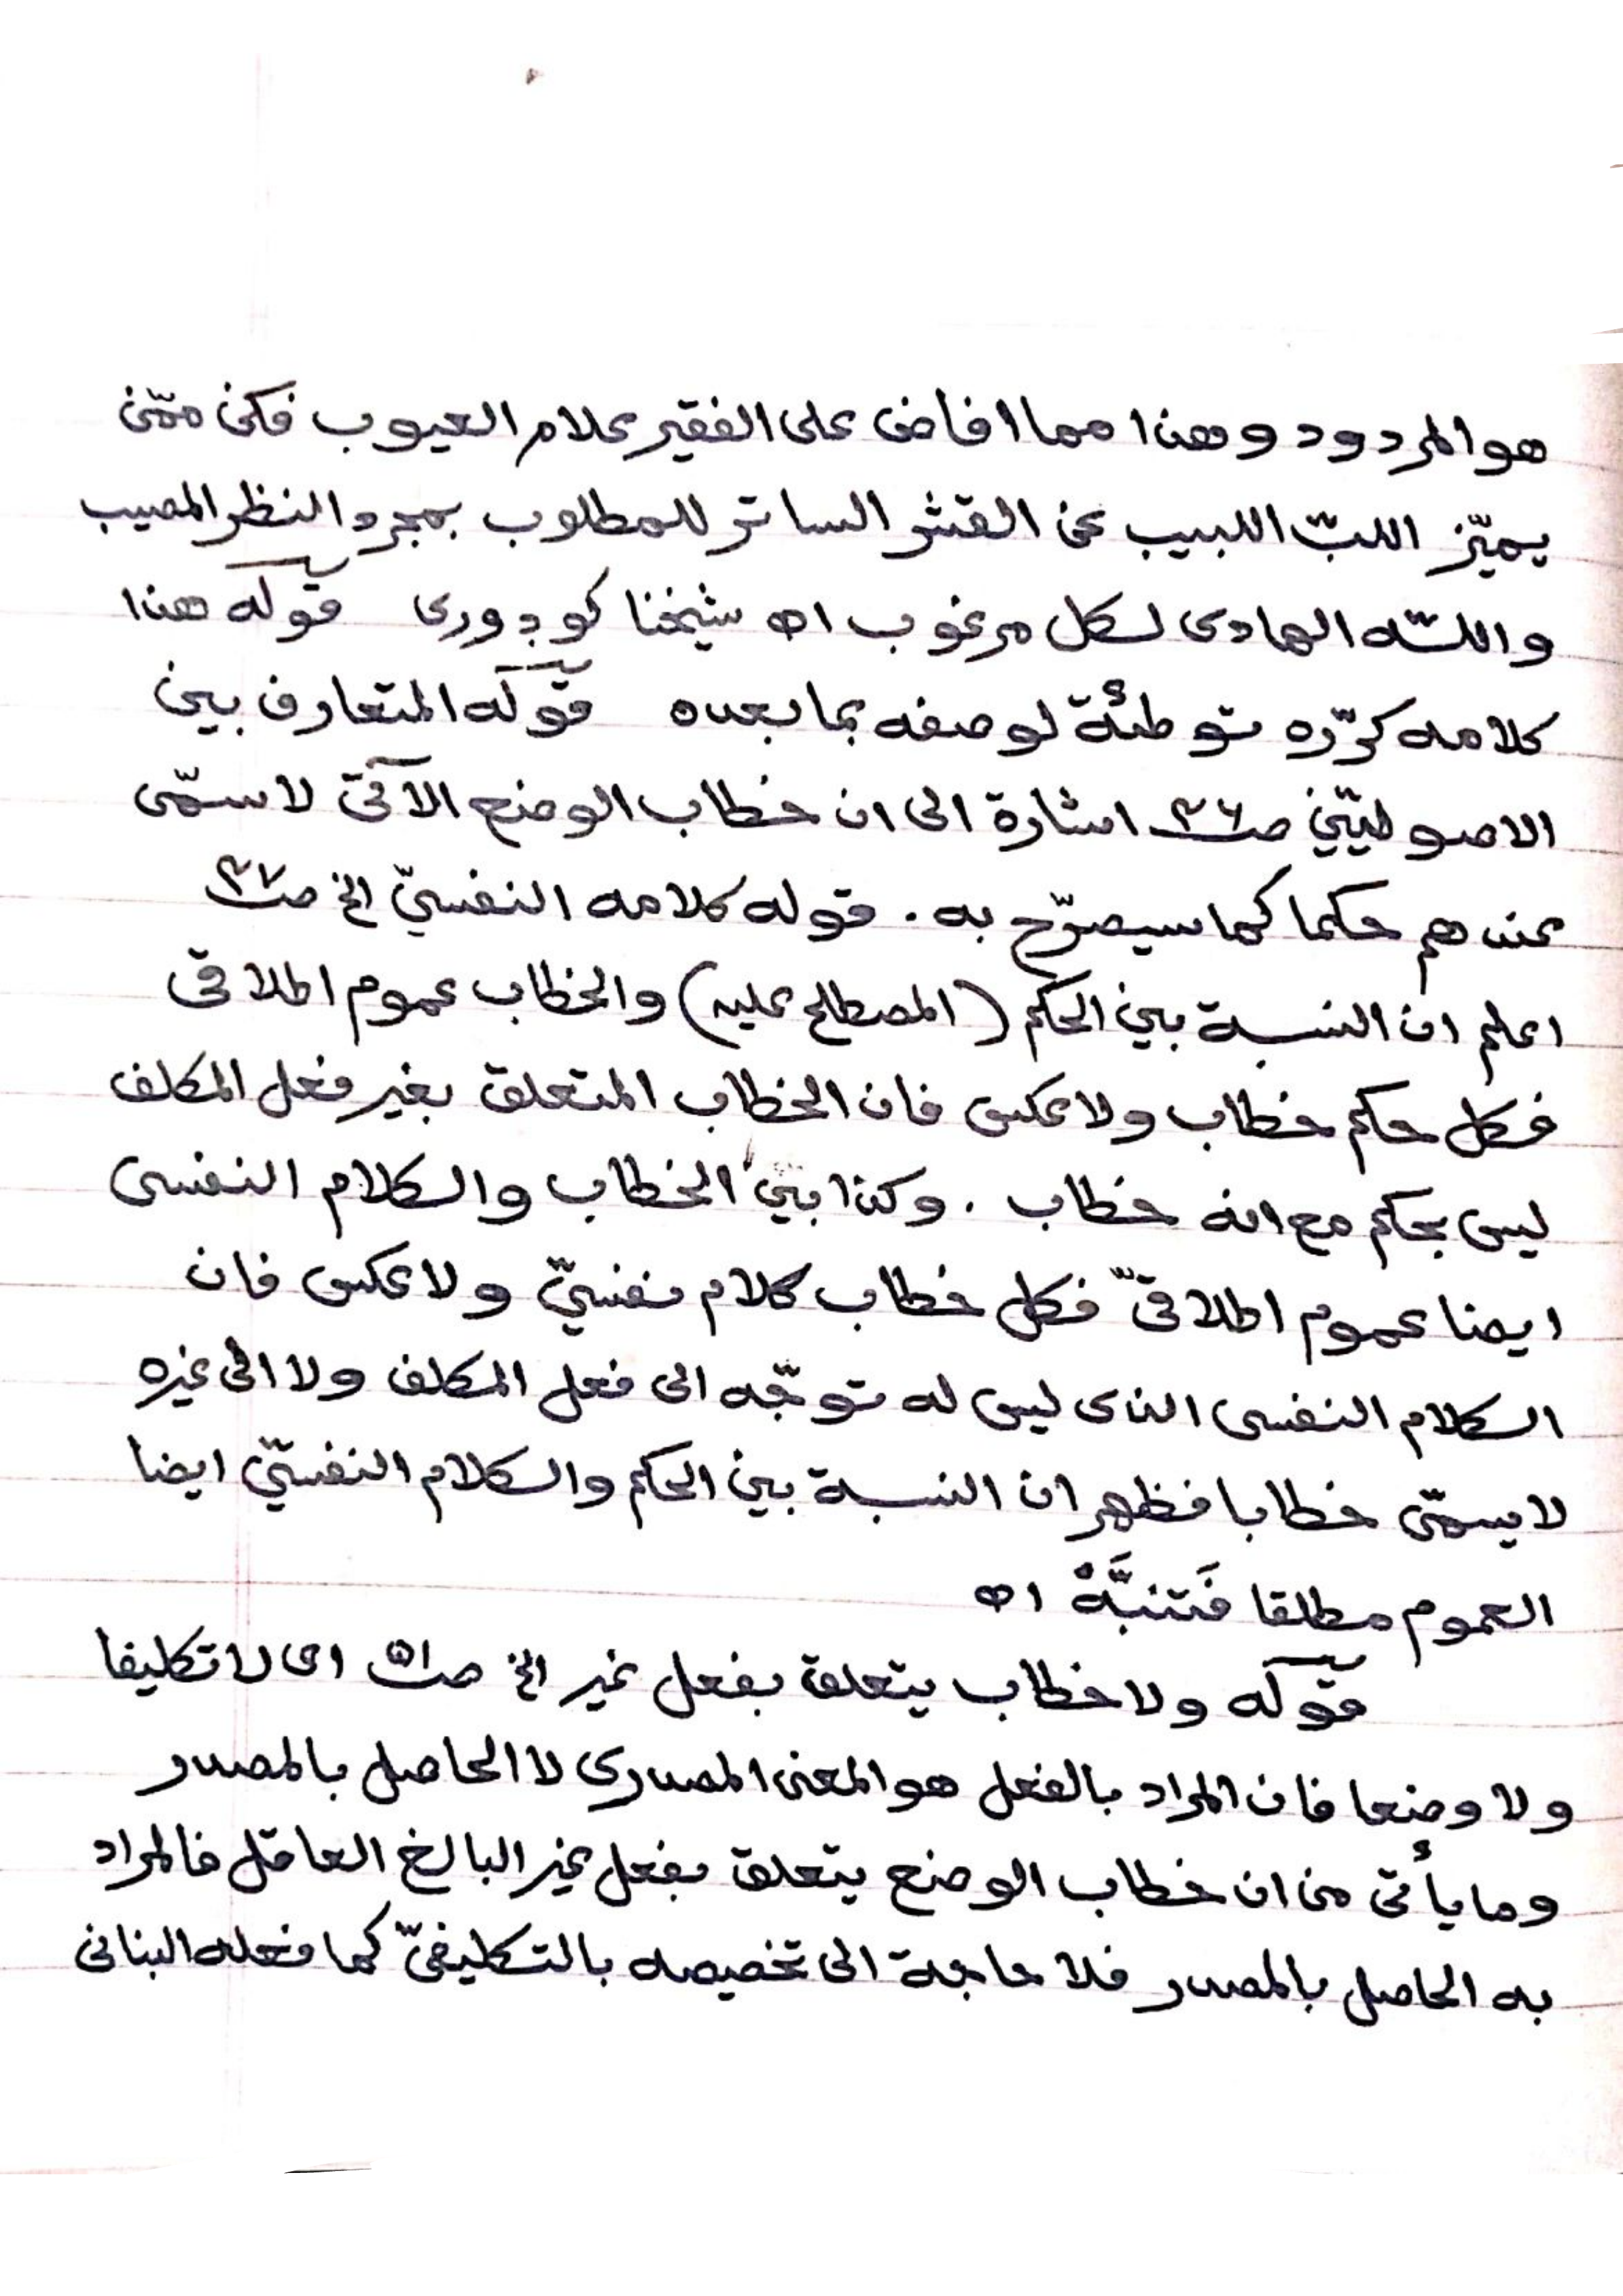 هو المردود وهذا مما افاض على الفقير علام العيوب فكن ممّن
يميّز اللبّ اللبيب عن القشر الساتر للمطلوب بمجرد النظر المصيب
واللّه الهادى لكل مرغوب اه شيخنا كوڊورى قوله هذا
كلامه كرّره توطئة لوصفه بما بعده قوله المتعارف بين
الاصوليّين صـ٣٦ اشارة الى ان خطاب الوضع الآتى لا سمّى
عندهم حكما كما سيصرّح به . قوله كلامه النفسيّ الخ صـ٣٧
اعلم ان النسبة بين الحكم (المصطلح عليه) والخطاب عموم اطلاقى
فكل حكم خطاب ولا عكس فان الخطاب المتعلق بغير فعل المكلف
ليس بحكم مع انه خطاب . وكذا بين الخطاب والكلام النفسى
ايضا عموم اطلاقىّ فكل خطاب كلام نفسيّ ولا عكس فان
الكلام النفسى الذى ليس له توجّه الى فعل المكلف ولا الى غيره
لا يسمّى خطابا فظهر ان النسبة بين الحكم والكلام النفسيّ ايضا
العموم مطلقا فَتنبَّهْ اه
قوله ولا خطاب يتعلق بفعل غير الخ صـ٥١ اى لا تكليفا
ولا وضعا فان المراد بالفعل هو المعنى المصدرى لا الحاصل بالمصدر
وما يأتى من ان خطاب الوضع يتعلق بفعل غير البالغ العاقل فالمراد
به الحاصل بالمصدر فلا حاجة الى تخصيصه بالتكليفىّ كما فعله البنانى